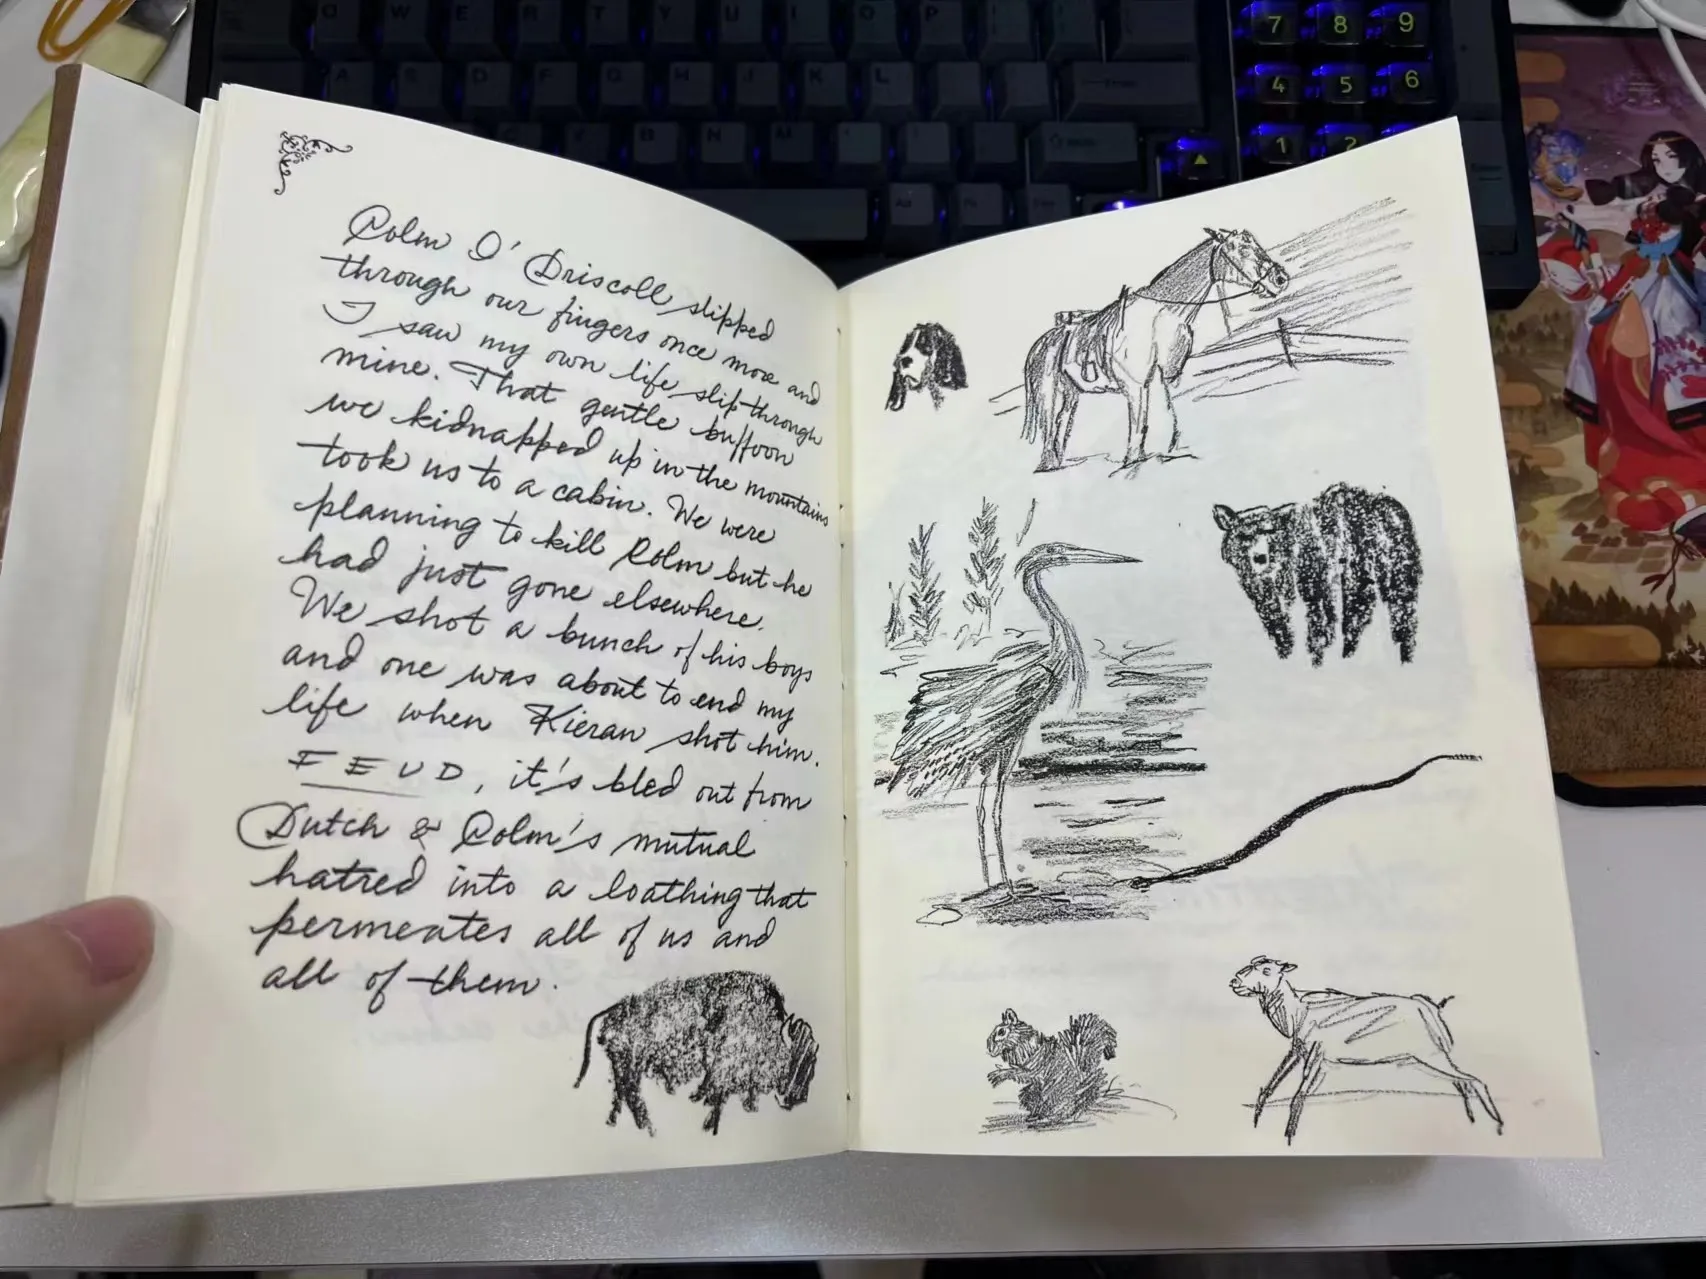 Q W E R T Y U I O P
7 8 9
A S D F G H J K L
4 5 6
B N M
1 2
Colm O' Driscoll slipped
through our fingers once more and
I saw my own life slip through
mine. That gentle buffoon
we kidnapped up in the mountains
took us to a cabin. We were
planning to kill Colm but he
had just gone elsewhere.
We shot a bunch of his boys
and one was about to end my
life when Kieran shot him.
FEUD, it's bled out from
Dutch & Colm's mutual
hatred into a loathing that
permeates all of us and
all of them.